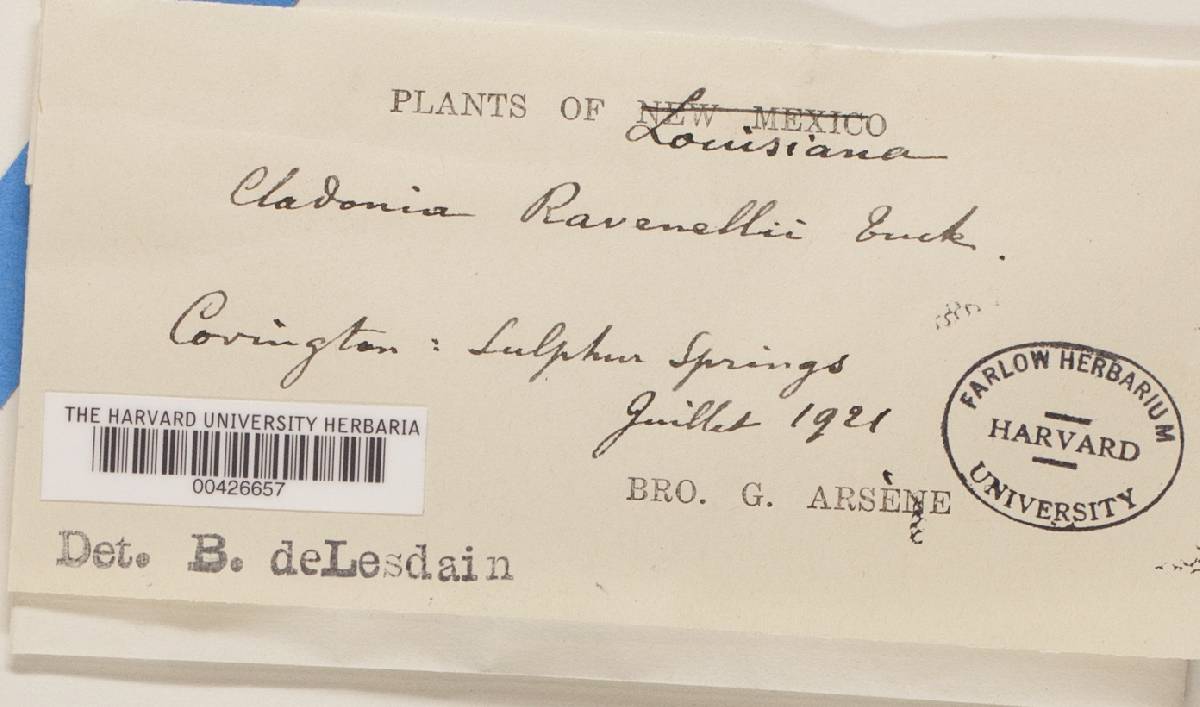 PLANTS OF NEW MEXICO
Louisiana
Cladonia Ravenellii Tuck.
Covington : Sulphur Springs
Juillet 1921
FARLOW HERBARIUM
HARVARD
UNIVERSITY
THE HARVARD UNIVERSITY HERBARIA
00426657
BRO. G. ARSÈNE
Det. B. deLesdain